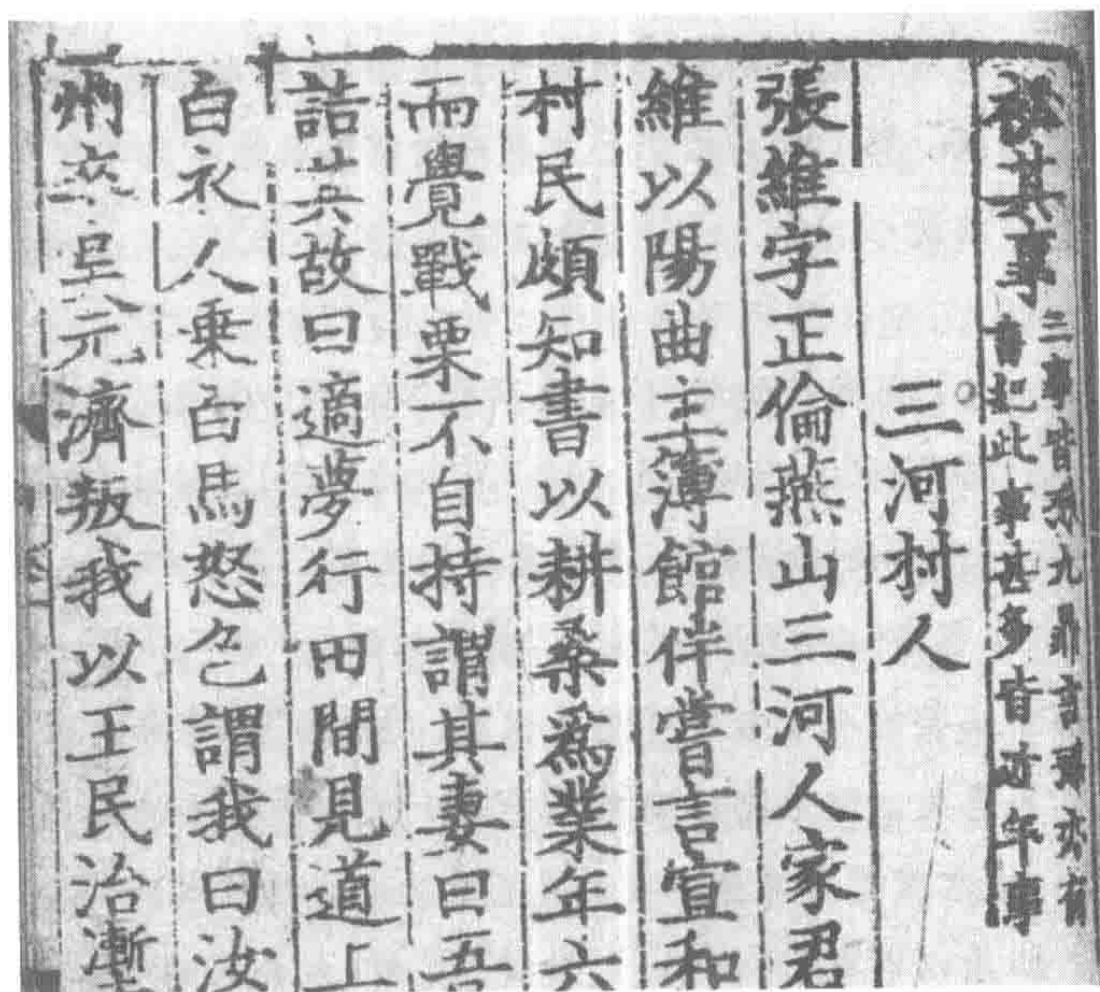 秘其事三事皆孫九鼎言孫亦有
書紀此事甚多皆近年事
三河村人
張維字正倫燕山三河人家君
維以陽曲主簿館伴嘗言宣和
村民頗知書以耕桑爲業年六
而覺戰栗不自持謂其妻曰吾
詰其故曰適夢行田間見道上
白衣人乗白馬怒色謂我曰汝
州卒吴元濟叛我以王民治壍